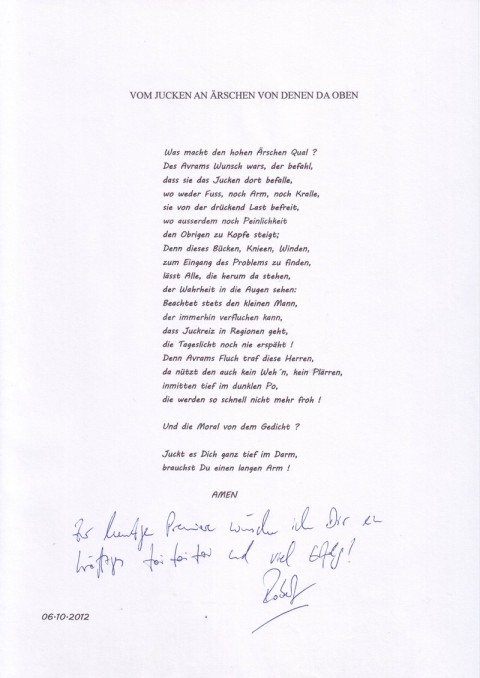 VOM JUCKEN AN ÄRSCHEN VON DENEN DA OBEN
Was macht den hohen Ärschen Qual ?
Des Avrams Wunsch wars, der befahl,
dass sie das Jucken dort befalle,
wo weder Fuss, noch Arm, noch Kralle,
sie von der drückend Last befreit,
wo ausserdem noch Peinlichkeit
den Obrigen zu Kopfe steigt;
Denn dieses Bücken, Knieen, Winden,
zum Eingang des Problems zu finden,
lässt Alle, die herum da stehen,
der Wahrheit in die Augen sehen:
Beachtet stets den kleinen Mann,
der immerhin verfluchen kann,
dass Juckreiz in Regionen geht,
die Tageslicht noch nie erspäht !
Denn Avrams Fluch traf diese Herren,
da nützt den auch kein Weh´n, kein Plärren,
inmitten tief im dunklen Po,
die werden so schnell nicht mehr froh !
Und die Moral von dem Gedicht ?
Juckt es Dich ganz tief im Darm,
brauchst Du einen langen Arm !
AMEN
Zur heutigen Premiere wünsche ich Dir ein
kräftiges toi toi toi und viel Erfolg!
Robert
06-10-2012